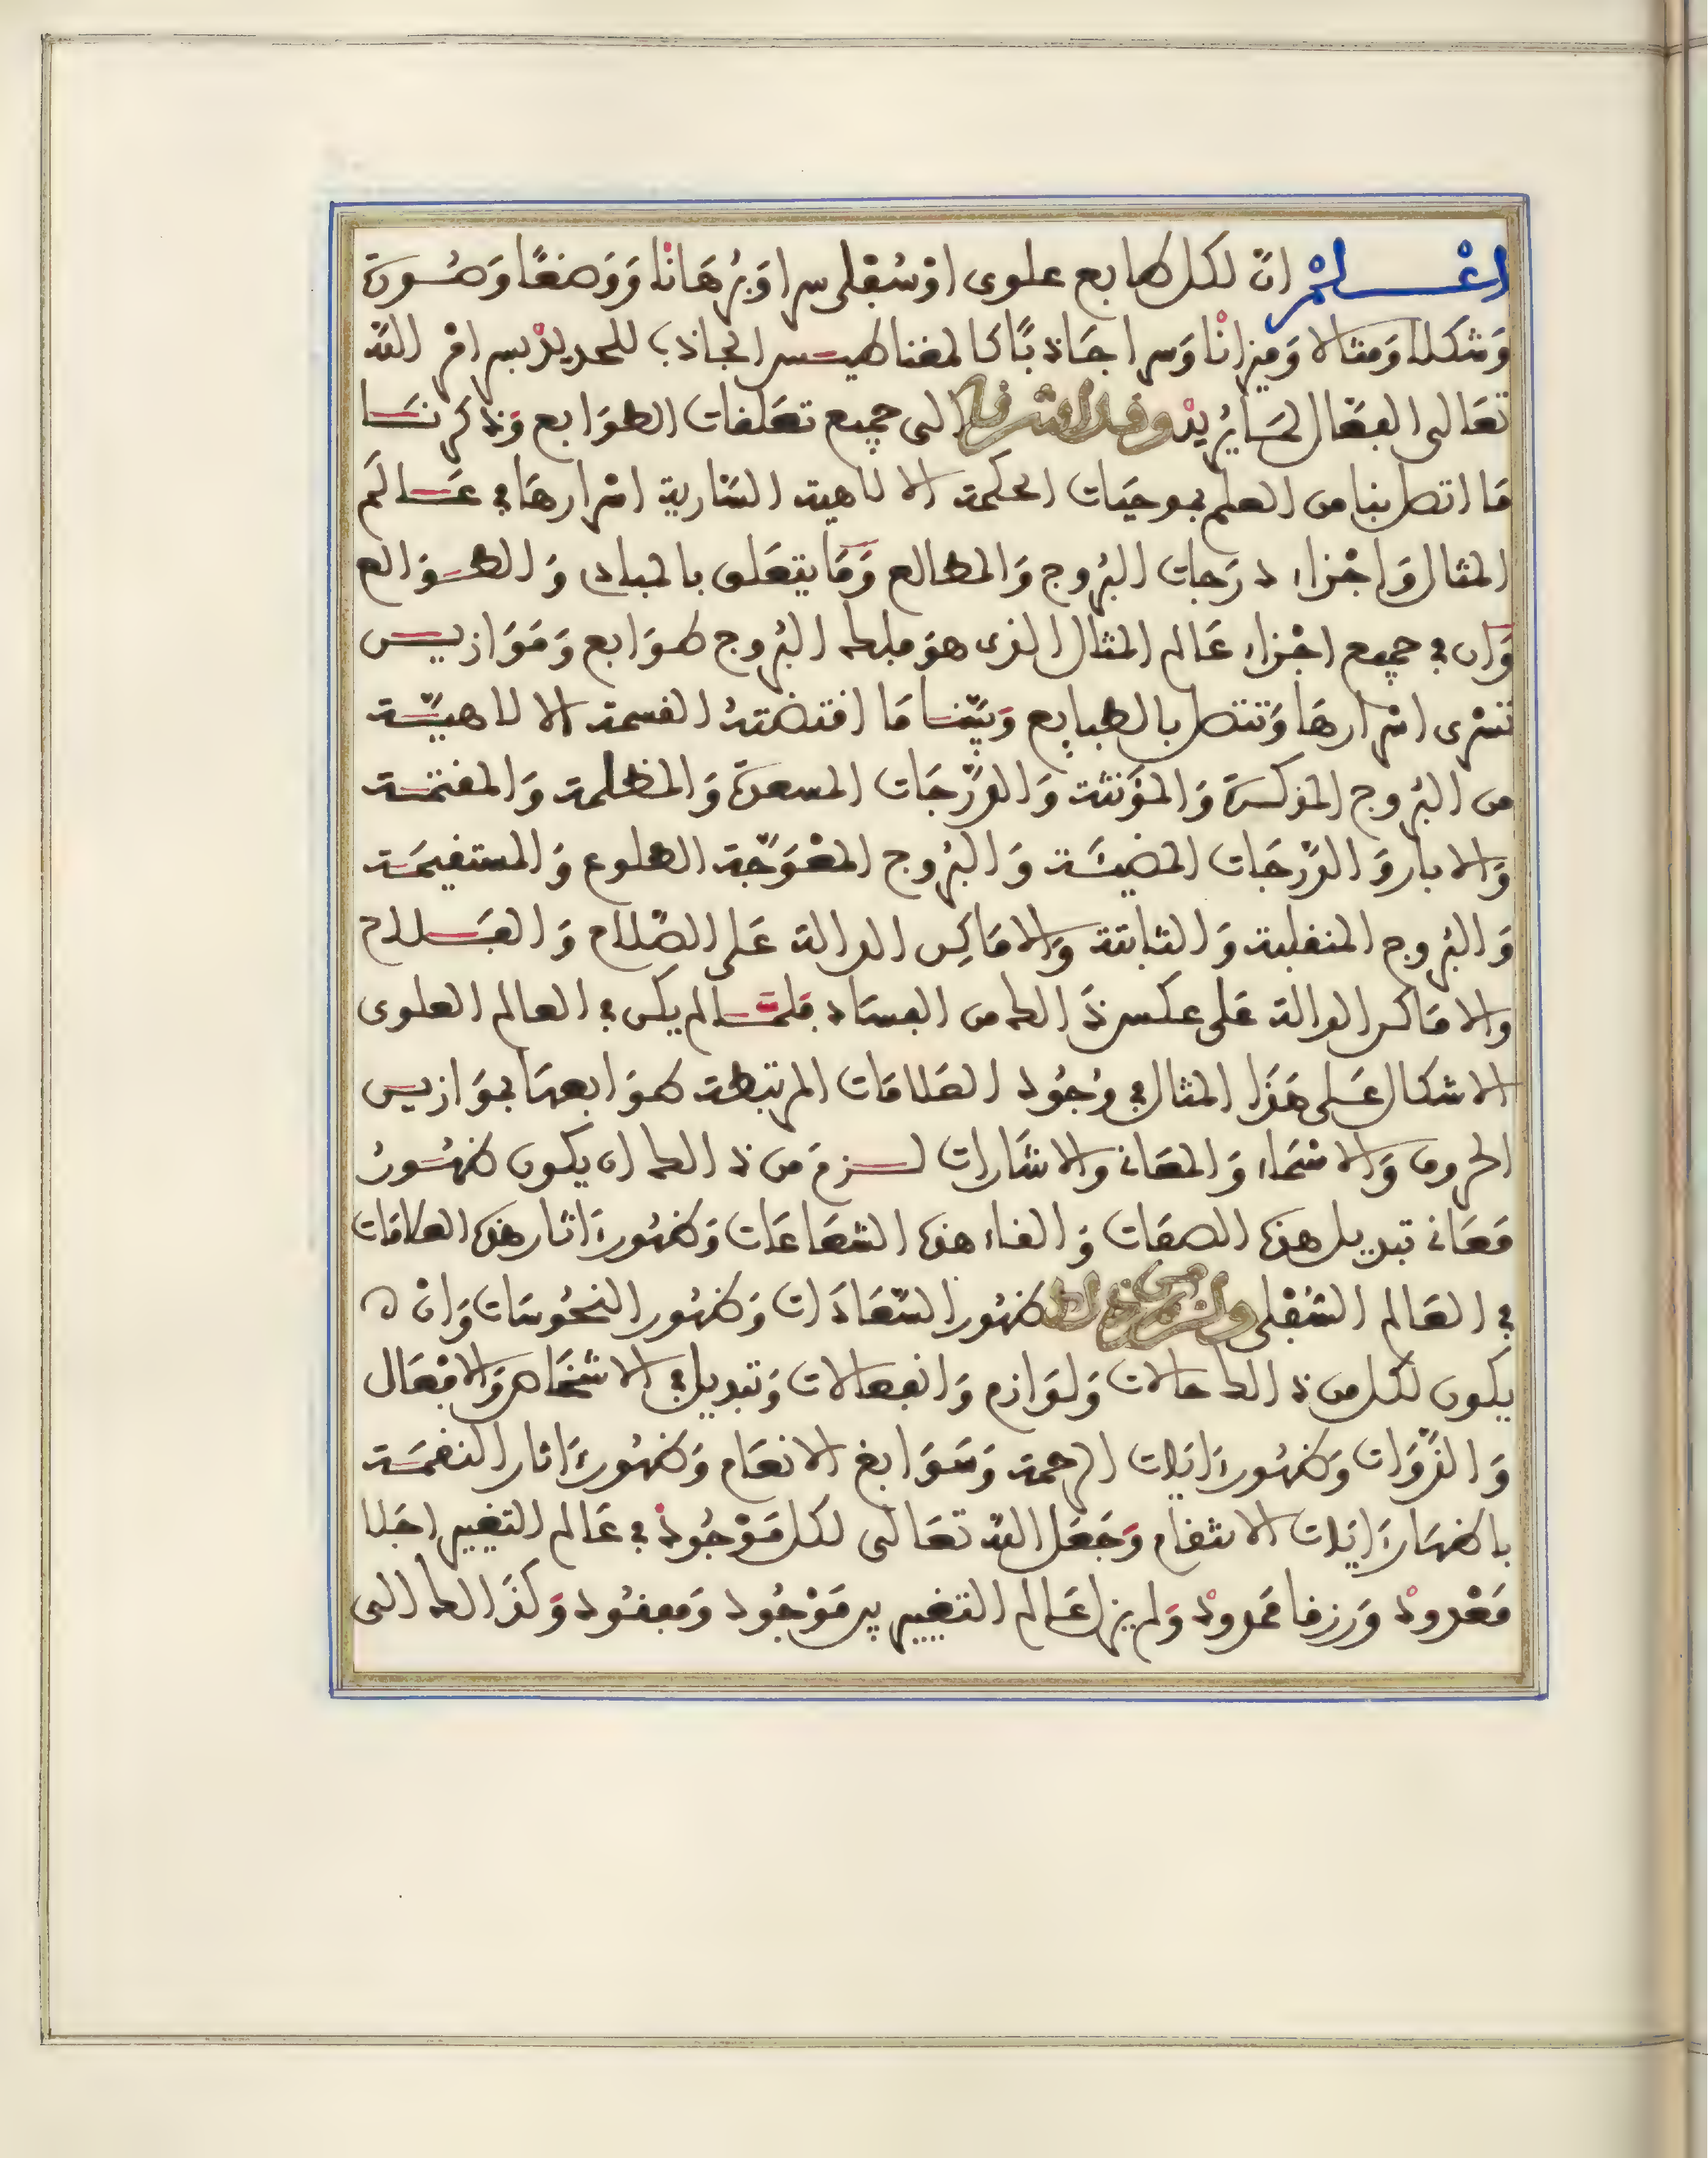 اعْلمْ انّ لكل طابع علوى اوْ سُفْلى سرا وَبُرْهَانْا وَوَضعًا وَصُورة
وَشكلا وَمثالا وَميزانْا وَسرا جَاذبًا كالمغناطيس الجاذب للحديدْ بسر امْر اللّه
تعَالى الفعّال لمَا يُريدْ وقد اشرنا الى جميع تعَلقات الطوَابع وَذكرنَا
مَا اتصل بنا من العلم بموجبَات الحكمة الالاهية السّارية اسْرارهَا في عَالَم
المثال وَاجْزاء درَجات البُروج وَالمطالع وَمَا يتعَلق بالمبادى وَالطوَالع
وَان في جميع اجْزاء عَالم المثال الذى هوَ فلك البُروج طوَابع وَمَوَازين
تسْرى اسْرارهَا وَتتصل بالطبايع وَبَيّنا مَا اقتضَتهُ القسمة الالاهيّة
من البُروج المذكرة وَالمؤَنثة وَالدّرَجَات المسعدة وَالمظلمة وَالمقتمَة
وَالابار وَالدّرَجَات المضيئَة وَالبُروج المعْوَجّة الطلوع وَالمستقيمَة
وَالبُروج المنقلبة وَالثابتة وَالامَاكِن الدالة عَلى الصّلاح وَالفَلاح
والامَاكن الدالة عَلى عكس ذَالك من الفسَاد فلمّا لم يكن في العالم العلوى
الاشكال عَلى هَذَا المثال في وُجُود العَلامَات المرتبطة طوَابعهَا بموَازين
الحروف وَالاسْمَاء وَالمعَانى والاشَارات لزمَ من ذالك ان يكون ظهُورُ
مَعَانى تبديل هذه الصفَات وَالقاء هذه الشعَاعَات وَظهُور ءَاثار هذه العلامَات
في العَالم السُفْلى ولزم من ذالك ظهُور السّعَادَات وَظهُور النحُوسَات وَانْ ه
يكون لكل من ذالك حالات وَلوَازم وَانفعالات وَتبديل في الاشخَاص وَالافْعَال
وَالذّوَات وَظهُور ءَايَات الرحمة وَسَوَابغ الانعَام وَظهُور ءَاثار النقمَة
باظهَار ءَايَات الانتقام وَجَعَل اللّه تعَالى لكل مَوْجُودْ في عَالم التغيير اجَلا
مَعْدودْ وَرزقا ممَدودْ وَلم يزل عَالم التغيير بين مَوْجُود وَمفقُود وَكذَالك الى